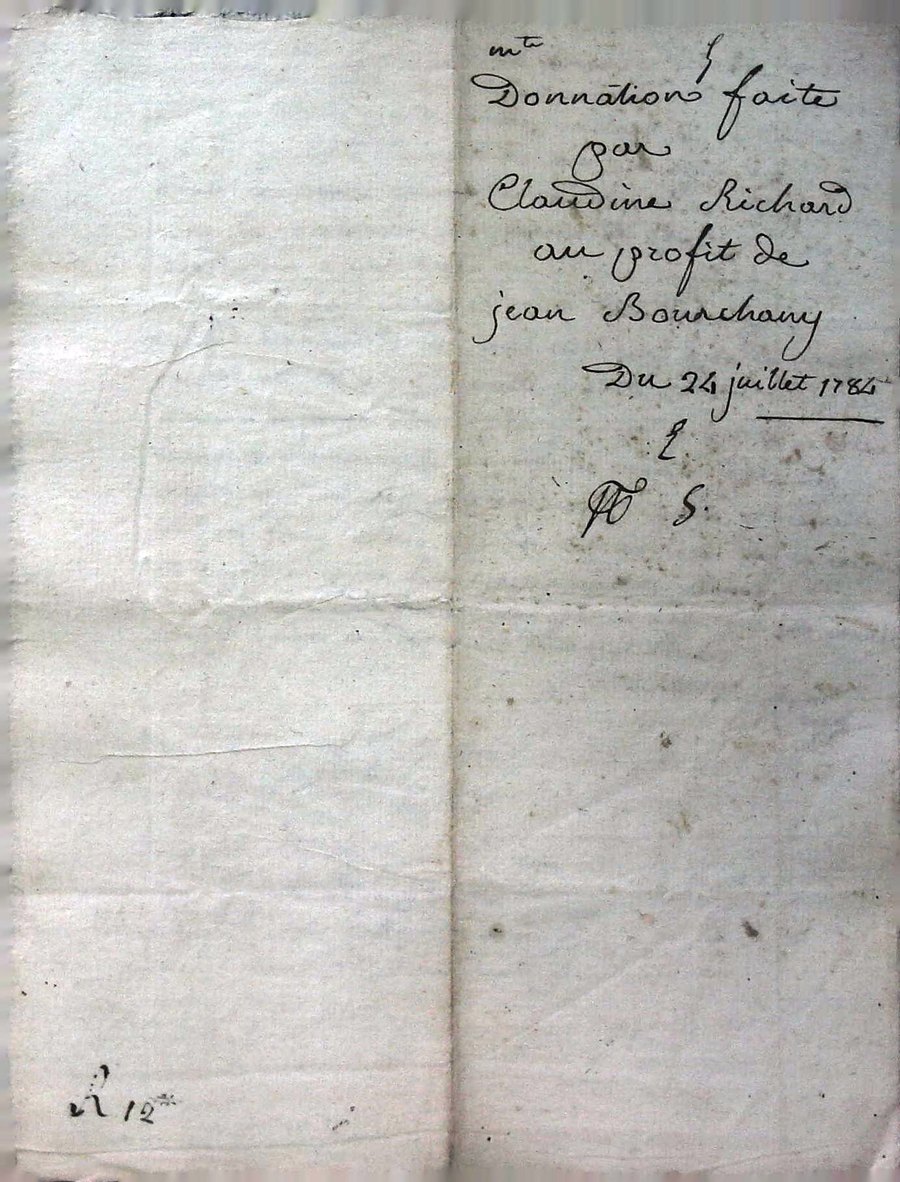 mte
Donnation faite
par
Claudine Richard
au profit de
jean Bourchany
Du 24 juillet 1784
R 12